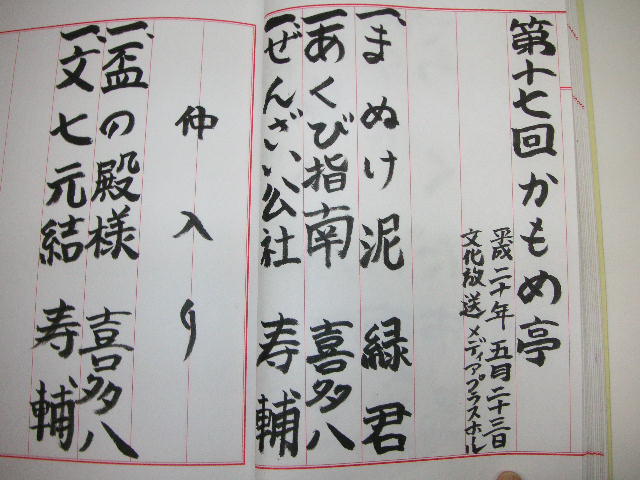 第十七回かもめ亭
平成二十年 五月二十三日
文化放送メディアプラスホール
一、まぬけ泥 緑君
一、あくび指南 喜多八
一、ぜんざい公社 寿輔
仲入り
一、盃の殿様 喜多八
一、文七元結 寿輔